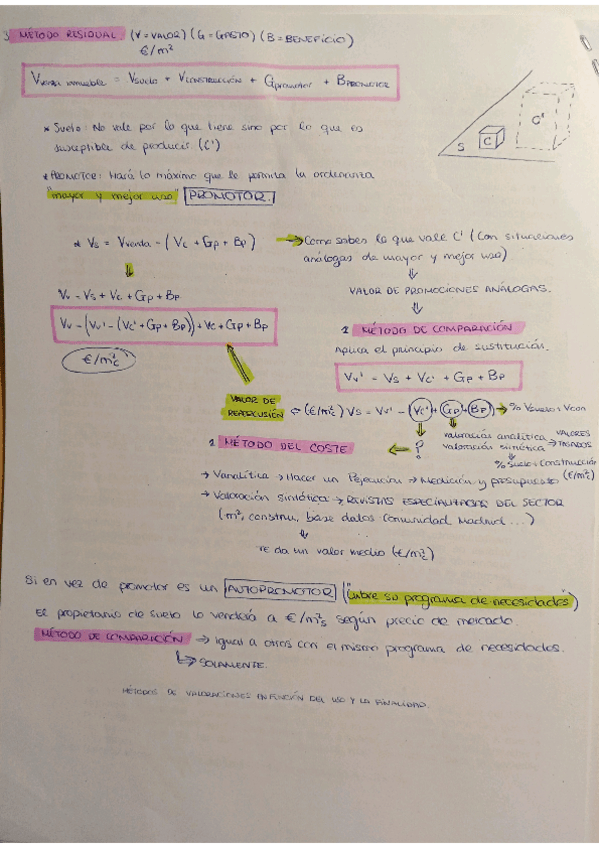 3 MÉTODO RESIDUAL (V = VALOR) (G = GASTO) (B = BENEFICIO)
€/m²
Vventa inmueble = Vsuelo + Vconstrucción + Gpromotor + Bpromotor
* Suelo: No vale por lo que tiene sino por lo que es
susceptible de producir (C')
S C C'
* PROMOTOR: Hará lo máximo que le permita la ordenanza
"mayor y mejor uso" PROMOTOR.
* Vs = Vventa - (Vc + Gp + Bp) → Como sabes lo que vale C' (Con situaciones
análogas de mayor y mejor uso)
⇓
VALOR DE PROMOCIONES ANÁLOGAS.
⇓
Vv = Vs + Vc + Gp + Bp
Vv - (Vv' - (Vc' + Gp + Bp)) + Vc + Gp + Bp
€/m²c
2 MÉTODO DE COMPARACIÓN
Aplica el principio de sustitución.
Vv' = Vs + Vc' + Gp + Bp
VALOR DE
REPERCUSIÓN ⇐ (€/m²c) Vs = Vv' - (Vc' + Gp + Bp) → % Vsuelo + Vcon
1 MÉTODO DEL COSTE ⇐ ?
valoración analítica VALORES
valoración sintética → TASADOS
% Suelo + Construcción
(€/m²)
→ Vanalítica → Hacer un P.ejecución → Medición y presupuesto
→ Valoración sintética → REVISTAS ESPECIALIZADAS DEL SECTOR
(m², constru, base datos Comunidad Madrid ...)
⇓
TE da un valor medio (€/m²c)
Si en vez de promotor es un AUTOPROMOTOR ("cubre su programa de necesidades")
El propietario de suelo lo venderá a €/m²s según precio de mercado.
MÉTODO DE COMPARICIÓN → igual a otros con el mismo programa de necesidades.
↳ SOLAMENTE.
MÉTODOS DE VALORACIONES EN FUNCIÓN DEL USO Y LA FINALIDAD.